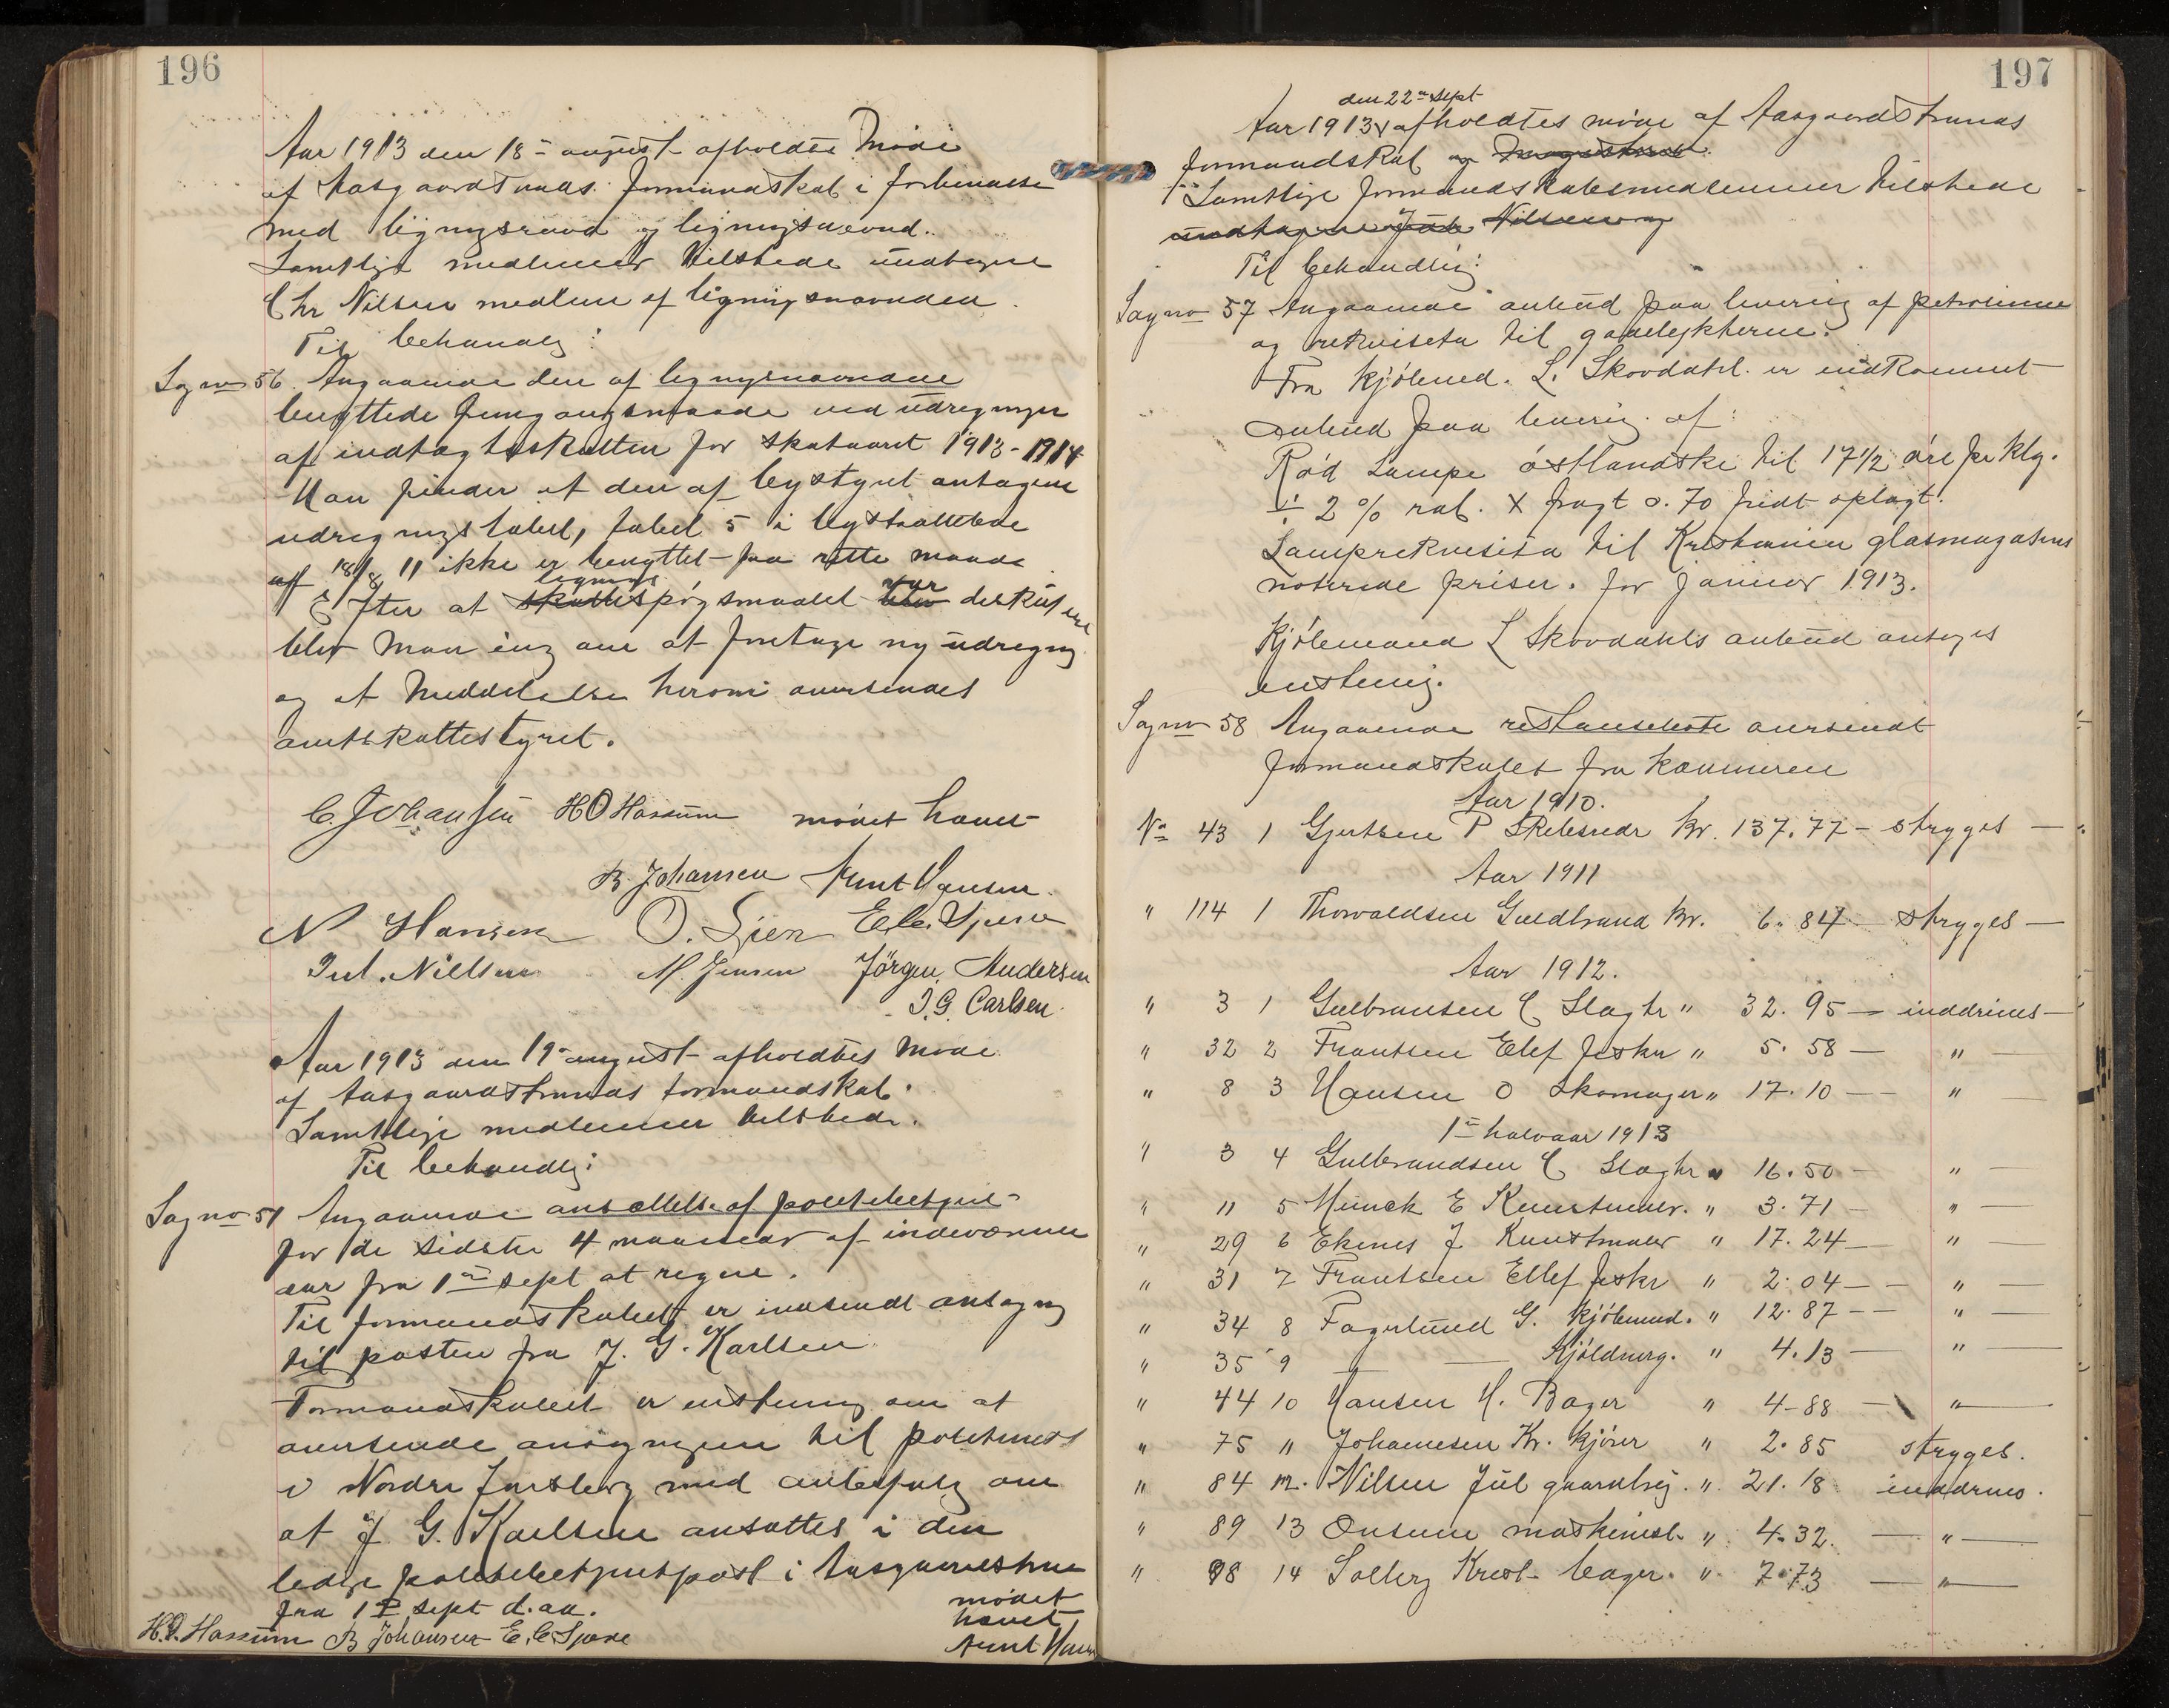 196
Aar 1913 den 18de august afholdtes Møde
af Aasgaardstrands formandskab i forbindelse
med ligningsraad og ligningsnævnd.
Samtlige medlemmer tilstede undtagen
Chr Nilsen medlem af ligningsnævnden.
Til behandlg:
Sag no 56. Angaaende den af ligningsnævndene
benyttede fremgangsmaade ved udregningen
af indtægtsskatten for skataaret 1913-1914
Man finder at den af bystyret antagne
udregningstabel, tabel 5 i byskatteloven
af 18/8 11 ikke er benyttet paa rette maade.
Efter at skatte lignings spørgsmaalet blev var diskuteret
blev man enig om at foretage ny udregng
og at Meddelelse herom oversendes
amtskattestyret.
C. Johansen HO Hassum mødet hævet
B Johansen Arnt Hansen.
N Hansen O. Lien E. C. Sperre
Jul. Nillsen M. Jensen Jörgen Andersen
J. G. Carlsen.
Aar 1913 den 19de august afholdtes Møde
af Aasgaardstrands formandskab.
Samtlige medlemmer tilstede.
Til behandlg:
Sag no 51 Angaaende ansættelse af politibetjent
for de sidste 4 maaneder af indeværende
aar fra 1ste sept at regne.
Til formandskabet er indsendt ansøgng
til posten fra J. G. Karlsen
Formandskabet er enstemig om at
oversende ansøgningen til politimest
i Nordre Jarlsberg med anbefalg om
at J. G. Karlsen ansættes i den
ledige politibetjentpost i Aasgaardstran
fra 1ste sept d. aa.
mødet
hævet
H.O. Hassum B Johansen E. C. Sperre Arnt Hansen
197
den 22de sept
Aar 1913 afholdtes møde af Aasgaardstrands
formandskab og Magistrat.
Samtlige formandskabsmedlemmer tilstede
undtagen Jul Nilsen og
Til behandling:
Sag no 57 Angaaende anbud paa levering af petroleum
og rekvisita til gadelygterne.
Fra kjøbmd. L. Skovdahl er indkommet
anbud paa levering af:
Rød Lampe østlandske til 17 1/2 øre pr klg.
÷ 2 % rab. + fragt o. 70 fridt oplagt.
Lamperekvisita til Kristiania glasmagasins
noterede priser. for januar 1913.
Kjøbmand L Skovdahls anbud antages
enstemig.
Sag no 58 Angaaende restanseliste oversendt
formandskabet fra kæmneren
Aar 1910.
No 43 1 Gjertsen P Skibsredr Kr. 137.77 - stryges —
Aar 1911
" 114 1 Thorvaldsen Guldbrand Kr. 6.84 — stryges —
Aar 1912.
" 3 1 Gulbransen C Slagtr " 32.95 — inddrives —
" 32 2 Frantsen Elef fisker " 5.58 — " —
" 8 3 Hansen O Skomager " 17.10 — " —
1ste halvaar 1913
" 3 4 Gulbrandsen C Slagtr " 16.50 — " —
" 11 5 Munck E Kunstmaler. " 3.71 — " —
" 29 6 Ekenes J Kunstmaler " 17.24 — " —
" 31 7 Frantsen Ellef fiskr " 2.04 — — " —
" 34 8 Fagerlund G. kjøbmd. " 12.87 — — " —
" 35 9 — — Kjöldnerg. " 4.13 — " —
" 44 10 Hansen H. Bager " 4-88 — " —
" 75 11 Johannesen Kr. kjører " 2.85 stryges.
" 84 12. Nilsen Jul gaardbrg. " 21.18 inddrives.
" 89 13 Onsum maskinist " 4.32. — " —
" 98 14 Solberg Krist bager. " 7.73 — " —